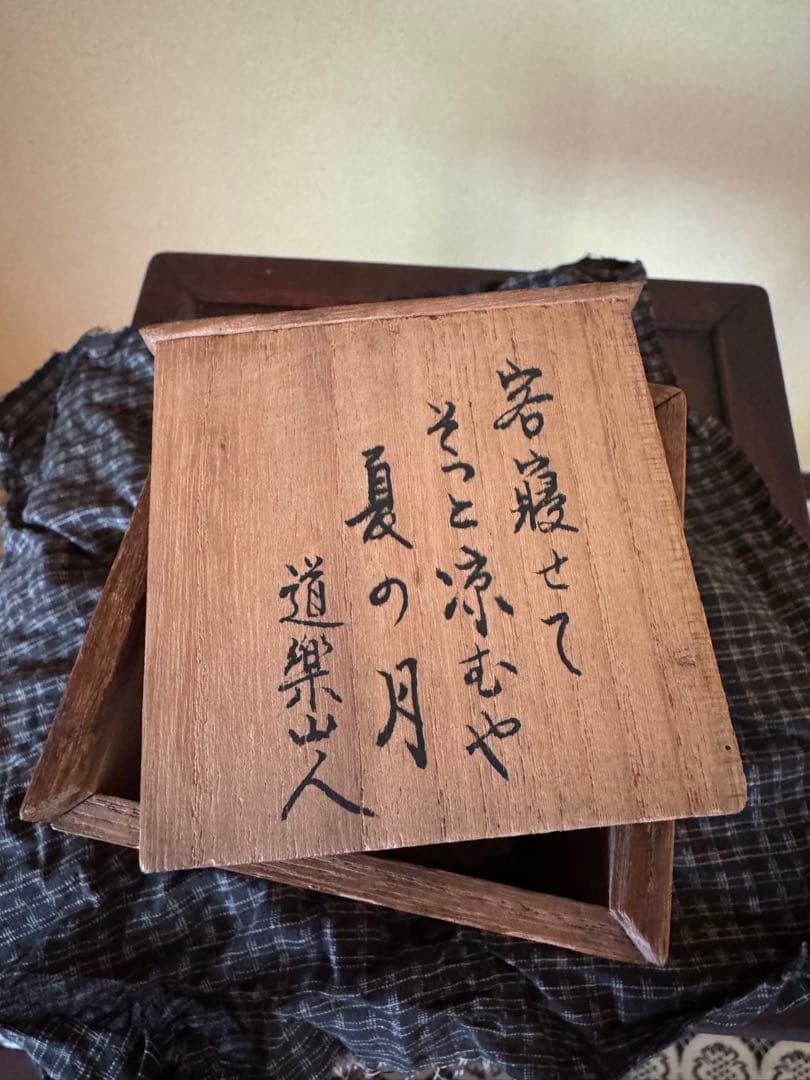 客寝せて
そっと涼むや
夏の月
道樂山人